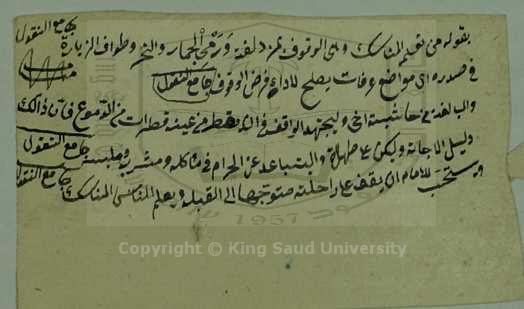 بقوله من تعليم المناسك وهى الوقوف بمزدلفة ورمى الجمار والنحر وطواف الزيارة جامع النقول
فى صدره اى مواضع عرفات يصلح لاداء فرض الوقوف جامع النقول
فى حاشية اخى وليجتهد الواقف فى ان يقطر من عينه قطرات من الدموع فان ذالك
دليل الاجابة وليكن على طهارة وليتباعد عن الحرام فى ماكله ومشربه وملبسه جامع النقول
ويستحب للامام ان يقف على راحلته متوجها الى القبلة ويعلم الناس المناسك جامع النقول
1957
Copyright © King Saud University